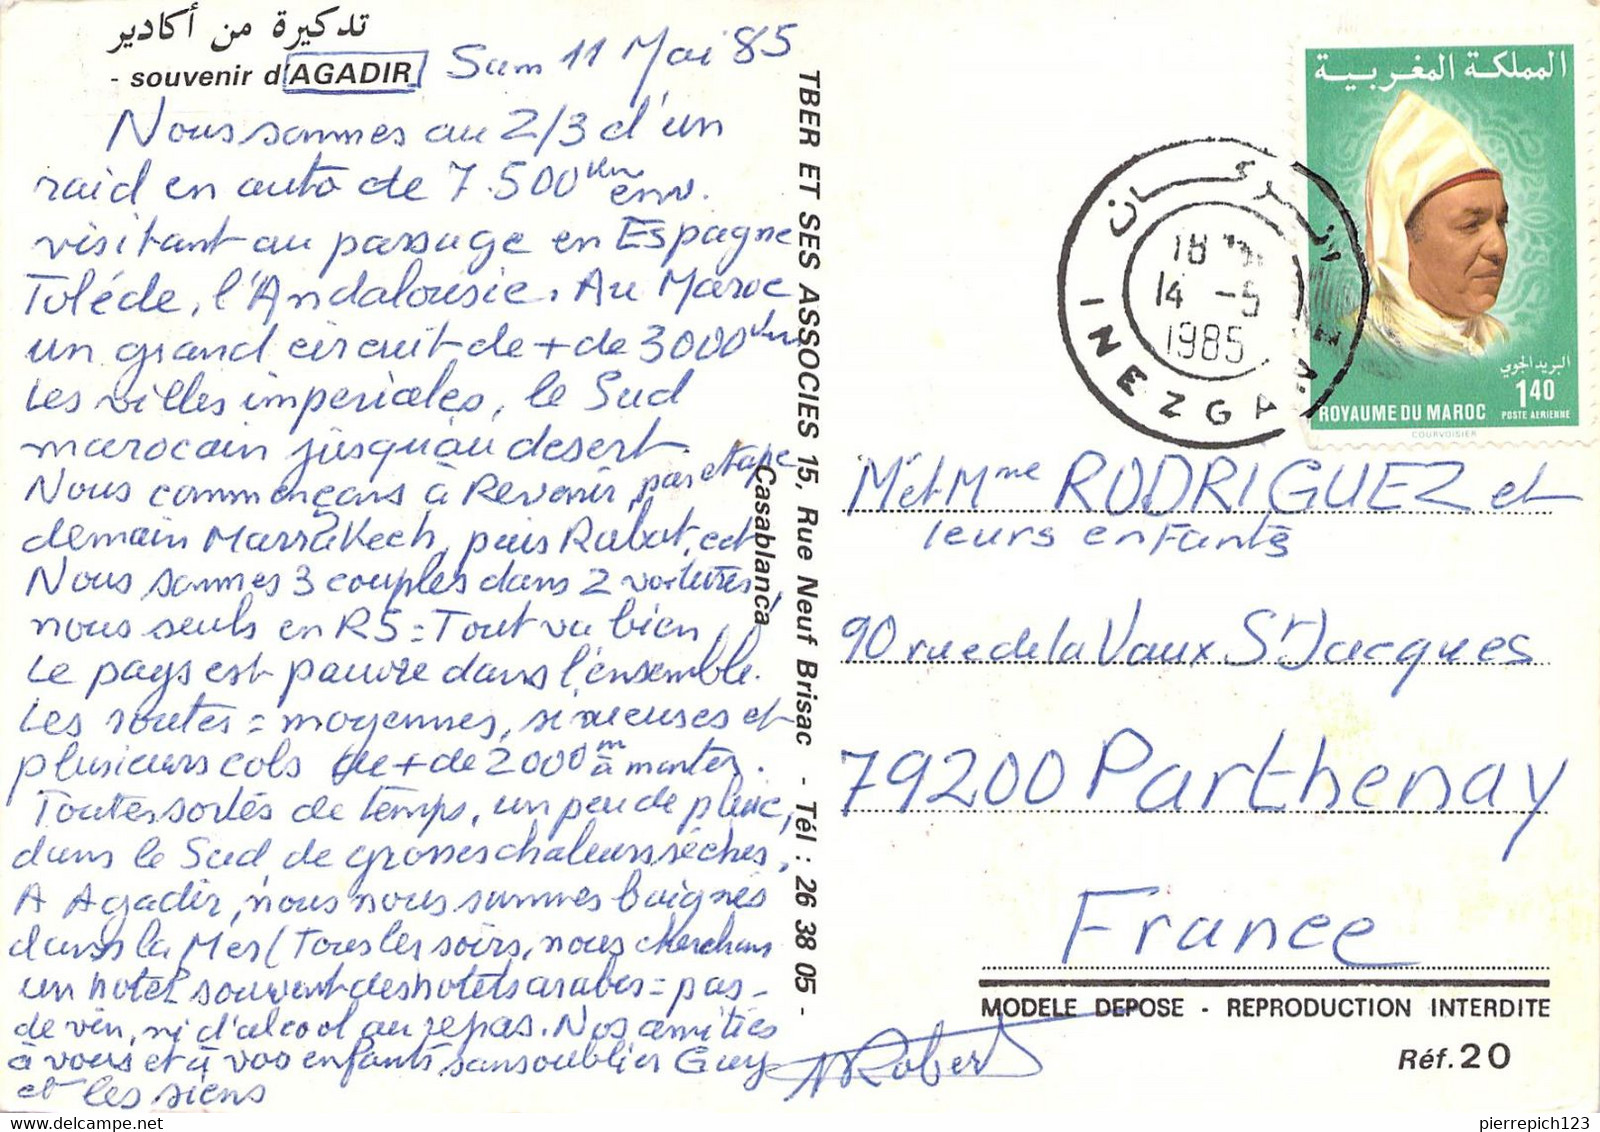 تذكيرة من أكادير
- souvenir d'AGADIR Sam 11 Mai 85
Nous sommes au 2/3 d'un
raid en auto de 7.500 km env.
visitant au passage en Espagne
Tolède, l'Andalousie. Au Maroc
un grand circuit de + de 3000 km
Les villes imperiales, le Sud
marocain jusqu'au desert.
Nous commençons à Revenir par etape
demain Marrakech, puis Rabat, ect
Nous sommes 3 couples dans 2 voitures,
nous seuls en R5 = Tout va bien
Le pays est pauvre dans l'ensemble.
Les routes = moyennes, sinueuses et
plusieurs cols de + de 2000 m à monter.
Toutes sortes de temps, un peu de pluie,
dans le Sud, de grosses chaleurs sèches,
A Agadir, nous nous sommes baignés
dans la Mer (Tous les soirs, nous cherchons
un hotel souvent des hotels arabes = pas
de vin, ni d'alcool au repas. Nos amitiés
à vous et à vos enfants sans oublier Guy
et les siens
Robert
TBER ET SES ASSOCIES 15, Rue Neuf Brisac - Tél : 26 38 05 -
Casablanca
المملكة المغربية
البريد الجوي
1.40
ROYAUME DU MAROC POSTE AERIENNE
COURVOISIER
18
14 -5
1985
INEZGA
M et Mme RODRIGUEZ et
leurs enfants
90 rue de la Vaux St Jacques
79200 Parthenay
France
MODELE DEPOSE - REPRODUCTION INTERDITE
Réf. 20
pierrepich123